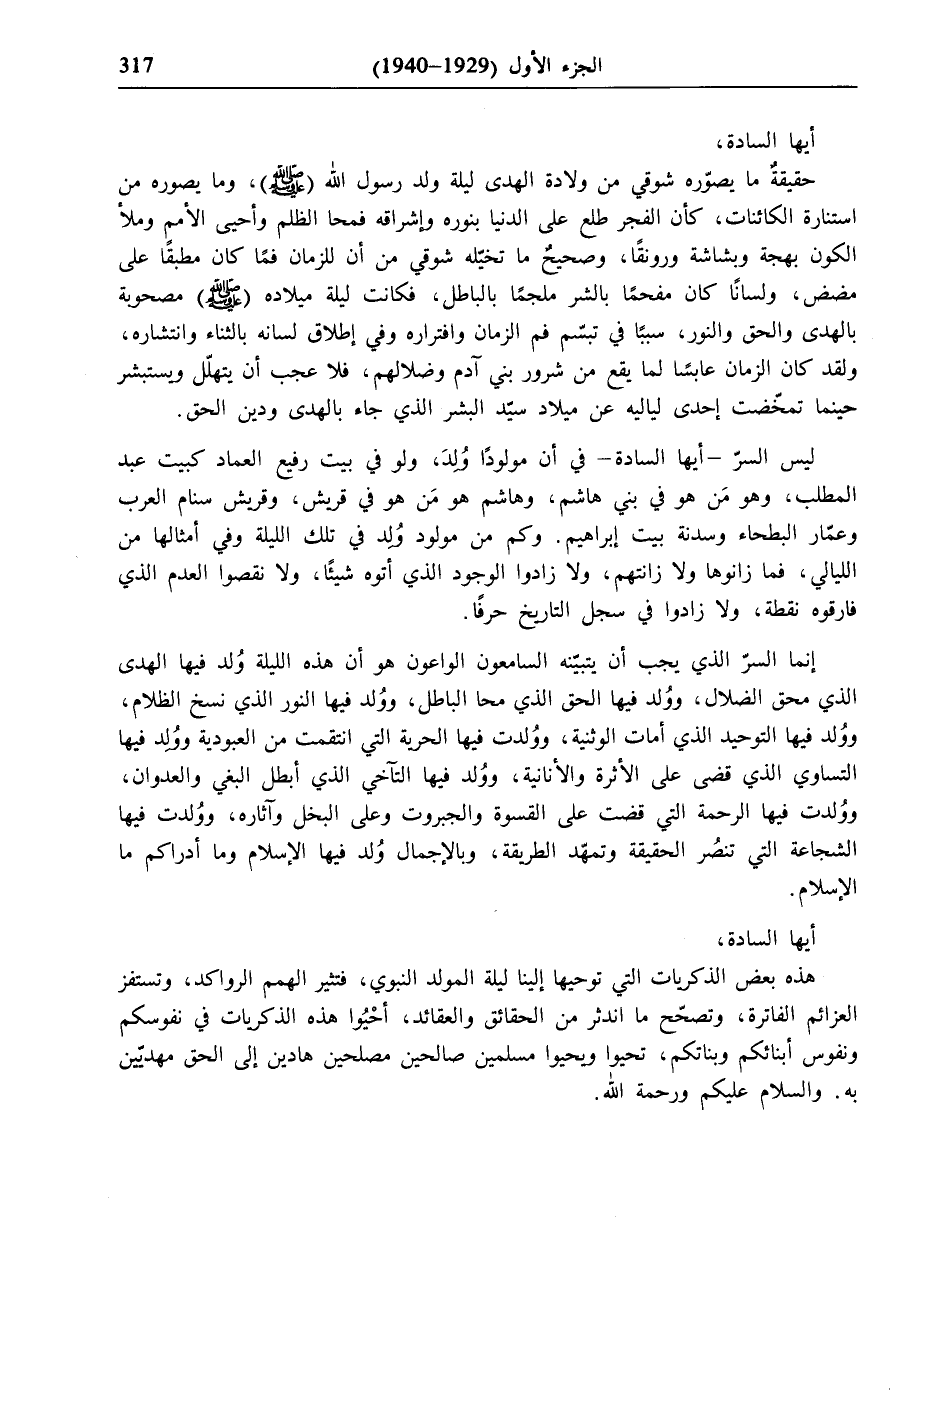 الجزء الأول (1929–1940) 317
أيها السادة،
حقيقةٌ ما يصوّره شوقي من ولادة الهدى ليلة ولد رسول الله (ﷺ)، وما يصوره من
استنارة الكائنات، كأن الفجر طلع على الدنيا بنوره وإشراقه فمحا الظلم وأحيى الأمم وملأ
الكون بهجة وبشاشة ورونقًا، وصحيحٌ ما تخيّله شوقي من أن للزمان فمًا كان مطبقًا على
مضض، ولسانًا كان مفحمًا بالشر ملجمًا بالباطل، فكانت ليلة ميلاده (ﷺ) مصحوبة
بالهدى والحق والنور، سببًا في تبسّم فم الزمان وافتراره وفي إطلاق لسانه بالثناء وانتشاره،
ولقد كان الزمان عابسًا لما يقع من شرور بني آدم وضلالهم، فلا عجب أن يتهلّل ويستبشر
حينما تمخّضت إحدى لياليه عن ميلاد سيّد البشر الذي جاء بالهدى ودين الحق.
ليس السرّ –أيها السادة– في أن مولودًا وُلِدَ، ولو في بيت رفيع العماد كبيت عبد
المطلب، وهو مَن هو في بني هاشم، وهاشم هو مَن هو في قريش، وقريش سنام العرب
وعمّار البطحاء وسدنة بيت إبراهيم. وكم من مولود وُلِد في تلك الليلة وفي أمثالها من
الليالي، فما زانوها ولا زانتهم، ولا زادوا الوجود الذي أتوه شيئًا، ولا نقصوا العدم الذي
فارقوه نقطة، ولا زادوا في سجل التاريخ حرفًا.
إنما السرّ الذي يجب أن يتبيّنه السامعون الواعون هو أن هذه الليلة وُلد فيها الهدى
الذي محق الضلال، ووُلد فيها الحق الذي محا الباطل، ووُلد فيها النور الذي نسخ الظلام،
ووُلد فيها التوحيد الذي أمات الوثنية، ووُلدت فيها الحرية التي انتقمت من العبودية ووُلِد فيها
التساوي الذي قضى على الأثرة والأنانية، ووُلد فيها التآخي الذي أبطل البغي والعدوان،
ووُلدت فيها الرحمة التي قضت على القسوة والجبروت وعلى البخل وآثاره، ووُلدت فيها
الشجاعة التي تنصُر الحقيقة وتمهّد الطريقة، وبالإجمال وُلد فيها الإسلام وما أدراكم ما
الإسلام.
أيها السادة،
هذه بعض الذكريات التي توحيها إلينا ليلة المولد النبوي، فتثير الهمم الرواكد، وتستفز
العزائم الفاترة، وتصحّح ما اندثر من الحقائق والعقائد، أحْيُوا هذه الذكريات في نفوسكم
ونفوس أبنائكم وبناتكم، تحيوا ويحيوا مسلمين صالحين مصلحين هادين إلى الحق مهديّين
به. والسلام عليكم ورحمة الله.